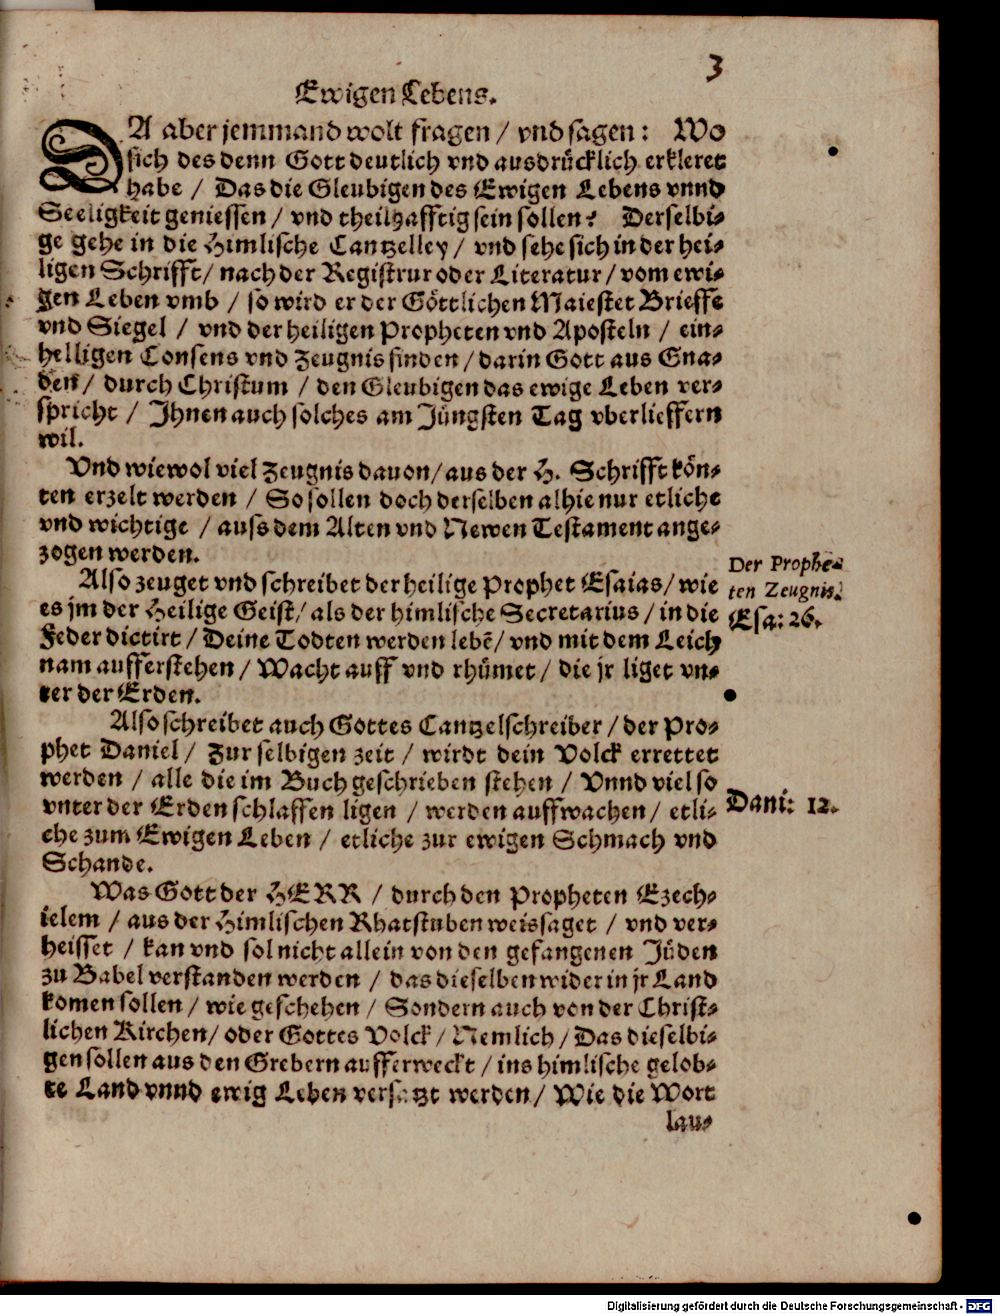 3
Ewigen Lebens.
DA aber jemmand wolt fragen / vnd sagen: Wo
sich des denn Gott deutlich vnd ausdrücklich erkleret
habe / Das die Gleubigen des Ewigen Lebens vnnd
Seeligkeit geniessen / vnd theilhafftig sein sollen? Derselbi-
ge gehe in die Himlische Cantzelley / vnd sehe sich in der hei-
ligen Schrifft / nach der Registrur oder Literatur / vom ewi-
gen Leben vmb / so wird er der Göttlichen Maiestet Brieffe
vnd Siegel / vnd der heiligen Propheten vnd Aposteln / ein-
helligen Consens vnd Zeugnis finden / darin Gott aus Gna-
den / durch Christum / den Gleubigen das ewige Leben ver-
spricht / Ihnen auch solches am Jüngsten Tag vberlieffern
wil.
Vnd wiewol viel Zeugnis dauon / aus der H. Schrifft kön-
ten erzelt werden / So sollen doch derselben alhie nur etliche
vnd wichtige / auss dem Alten vnd Newen Testament ange-
zogen werden.
Also zeuget vnd schreibet der heilige Prophet Esaias / wie
es jm der Heilige Geist / als der himlische Secretarius / in die
Feder dictirt / Deine Todten werden lebē / vnd mit dem Leich
nam aufferstehen / Wacht auff vnd rhümet / die jr liget vn-
ter der Erden.
Der Prophe-
ten Zeugnis.
Esa: 26.
Also schreibet auch Gottes Cantzelschreiber / der Pro-
phet Daniel / Zur selbigen zeit / wirdt dein Volck errettet
werden / alle die im Buch geschrieben stehen / Vnnd viel so
vnter der Erden schlaffen ligen / werden auffwachen / etli-
che zum Ewigen Leben / etliche zur ewigen Schmach vnd
Schande.
Dani: 12.
Was Gott der HERR / durch den Propheten Ezech-
ielem / aus der Himlischen Rhatstuben weissaget / vnd ver-
heisset / kan vnd sol nicht allein von den gefangenen Jüden
zu Babel verstanden werden / das dieselben wider in jr Land
komen sollen / wie geschehen / Sondern auch von der Christ-
lichen Kirchen / oder Gottes Volck / Nemlich / Das dieselbi-
gen sollen aus den Grebern aufferweckt / ins himlische gelob-
te Land vnnd ewig Leben versetzt werden / Wie die Wort
lau-
Digitalisierung gefördert durch die Deutsche Forschungsgemeinschaft - DFG